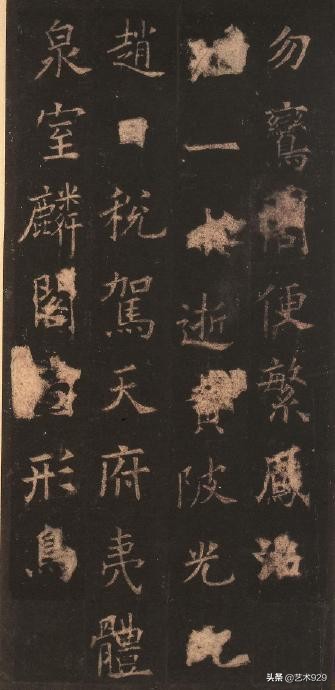 勿鸞閣便繁鳳沼
一逝陂光
趙税駕天府夷體
泉室麟閣形鳥
头条 @艺术929